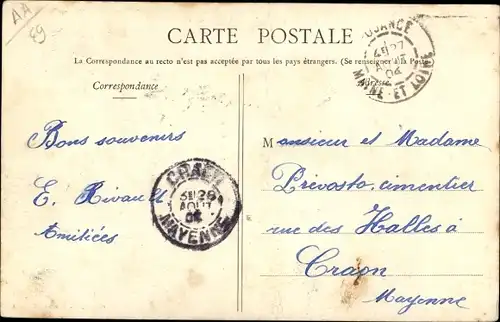 AA
59
CARTE POSTALE
La Correspondance au recto n'est pas acceptée par tous les pays étrangers. (Se renseigner à la Poste)
Correspondance
MAINE-ET-LOIRE
04
Bons souvenirs
E. Rivault
Amitiées
CRAON
29
AOUT
04
MAYENNE
Monsieur et Madame
Prévosto, cimentier
rue des Halles à
Craon
Mayenne